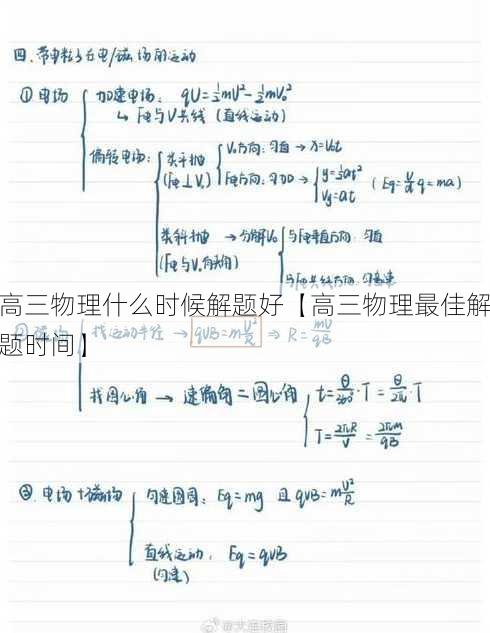 四.带电粒子在电/磁场的运动
① 电场 加速电场: qU=½mV²-½mV₀²
↳ F电与V共线 (直线运动)
偏转电场: 类平抛 (F电⊥V₀) V₀方向: 匀直 → x=V₀t
F电方向: 匀加 → y=½at² Vy=at (Eq=U/d q=ma)
类斜抛 (F电与V₀有夹角) → 分解V₀ 与F电垂直方向: 匀直
与F电共线方向: 匀变速
高三物理什么时候解题好【高三物理最佳解
题时间】
② 磁场 找运动半径 → qVB=mV²/R ⇒ R=mV/qB
找圆心角 → 速偏角=圆心角 t=θ/360°·T=θ/2π·T
T=2πR/V=2πm/qB
③ 电场+磁场 匀速圆周: Eq=mg 且 qVB=mV²/R
直线运动: Eq=qVB
(匀速)